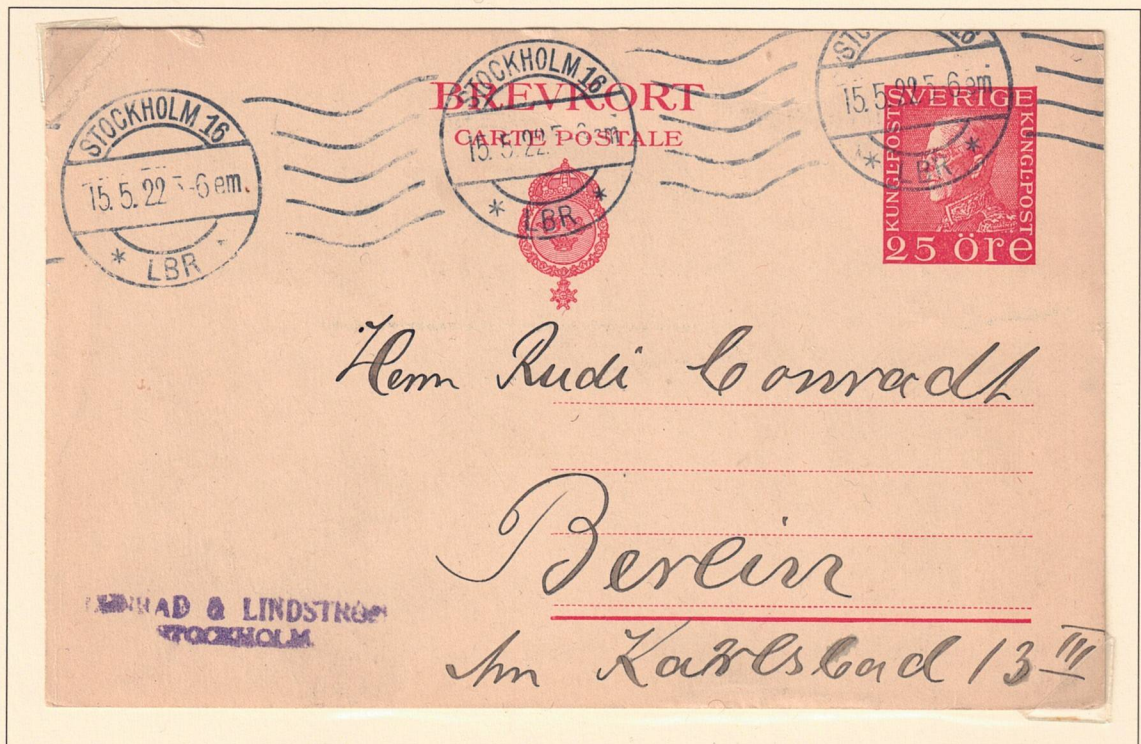 STOCKHOLM 16
15.5.22 -6 em.
* LBR
STOCKHOLM 16
15.5.22 5-6 em
* LBR *
15.5.22 5-6 em
* LBR *
BREVKORT
CARTE POSTALE
SVERIGE
KUNGL·POST
KUNGL·POST
25 öre
Herrn Rudi Conradt
Berlin
Am Karlsbad 13 III
& LINDSTRÖM
STOCKHOLM